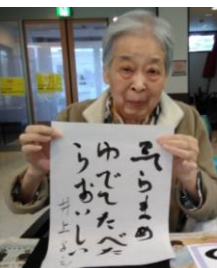 そらまめ
ゆでてたべた
らおいしい
井上